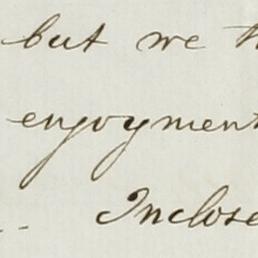 but we
enjoyment
Inclose